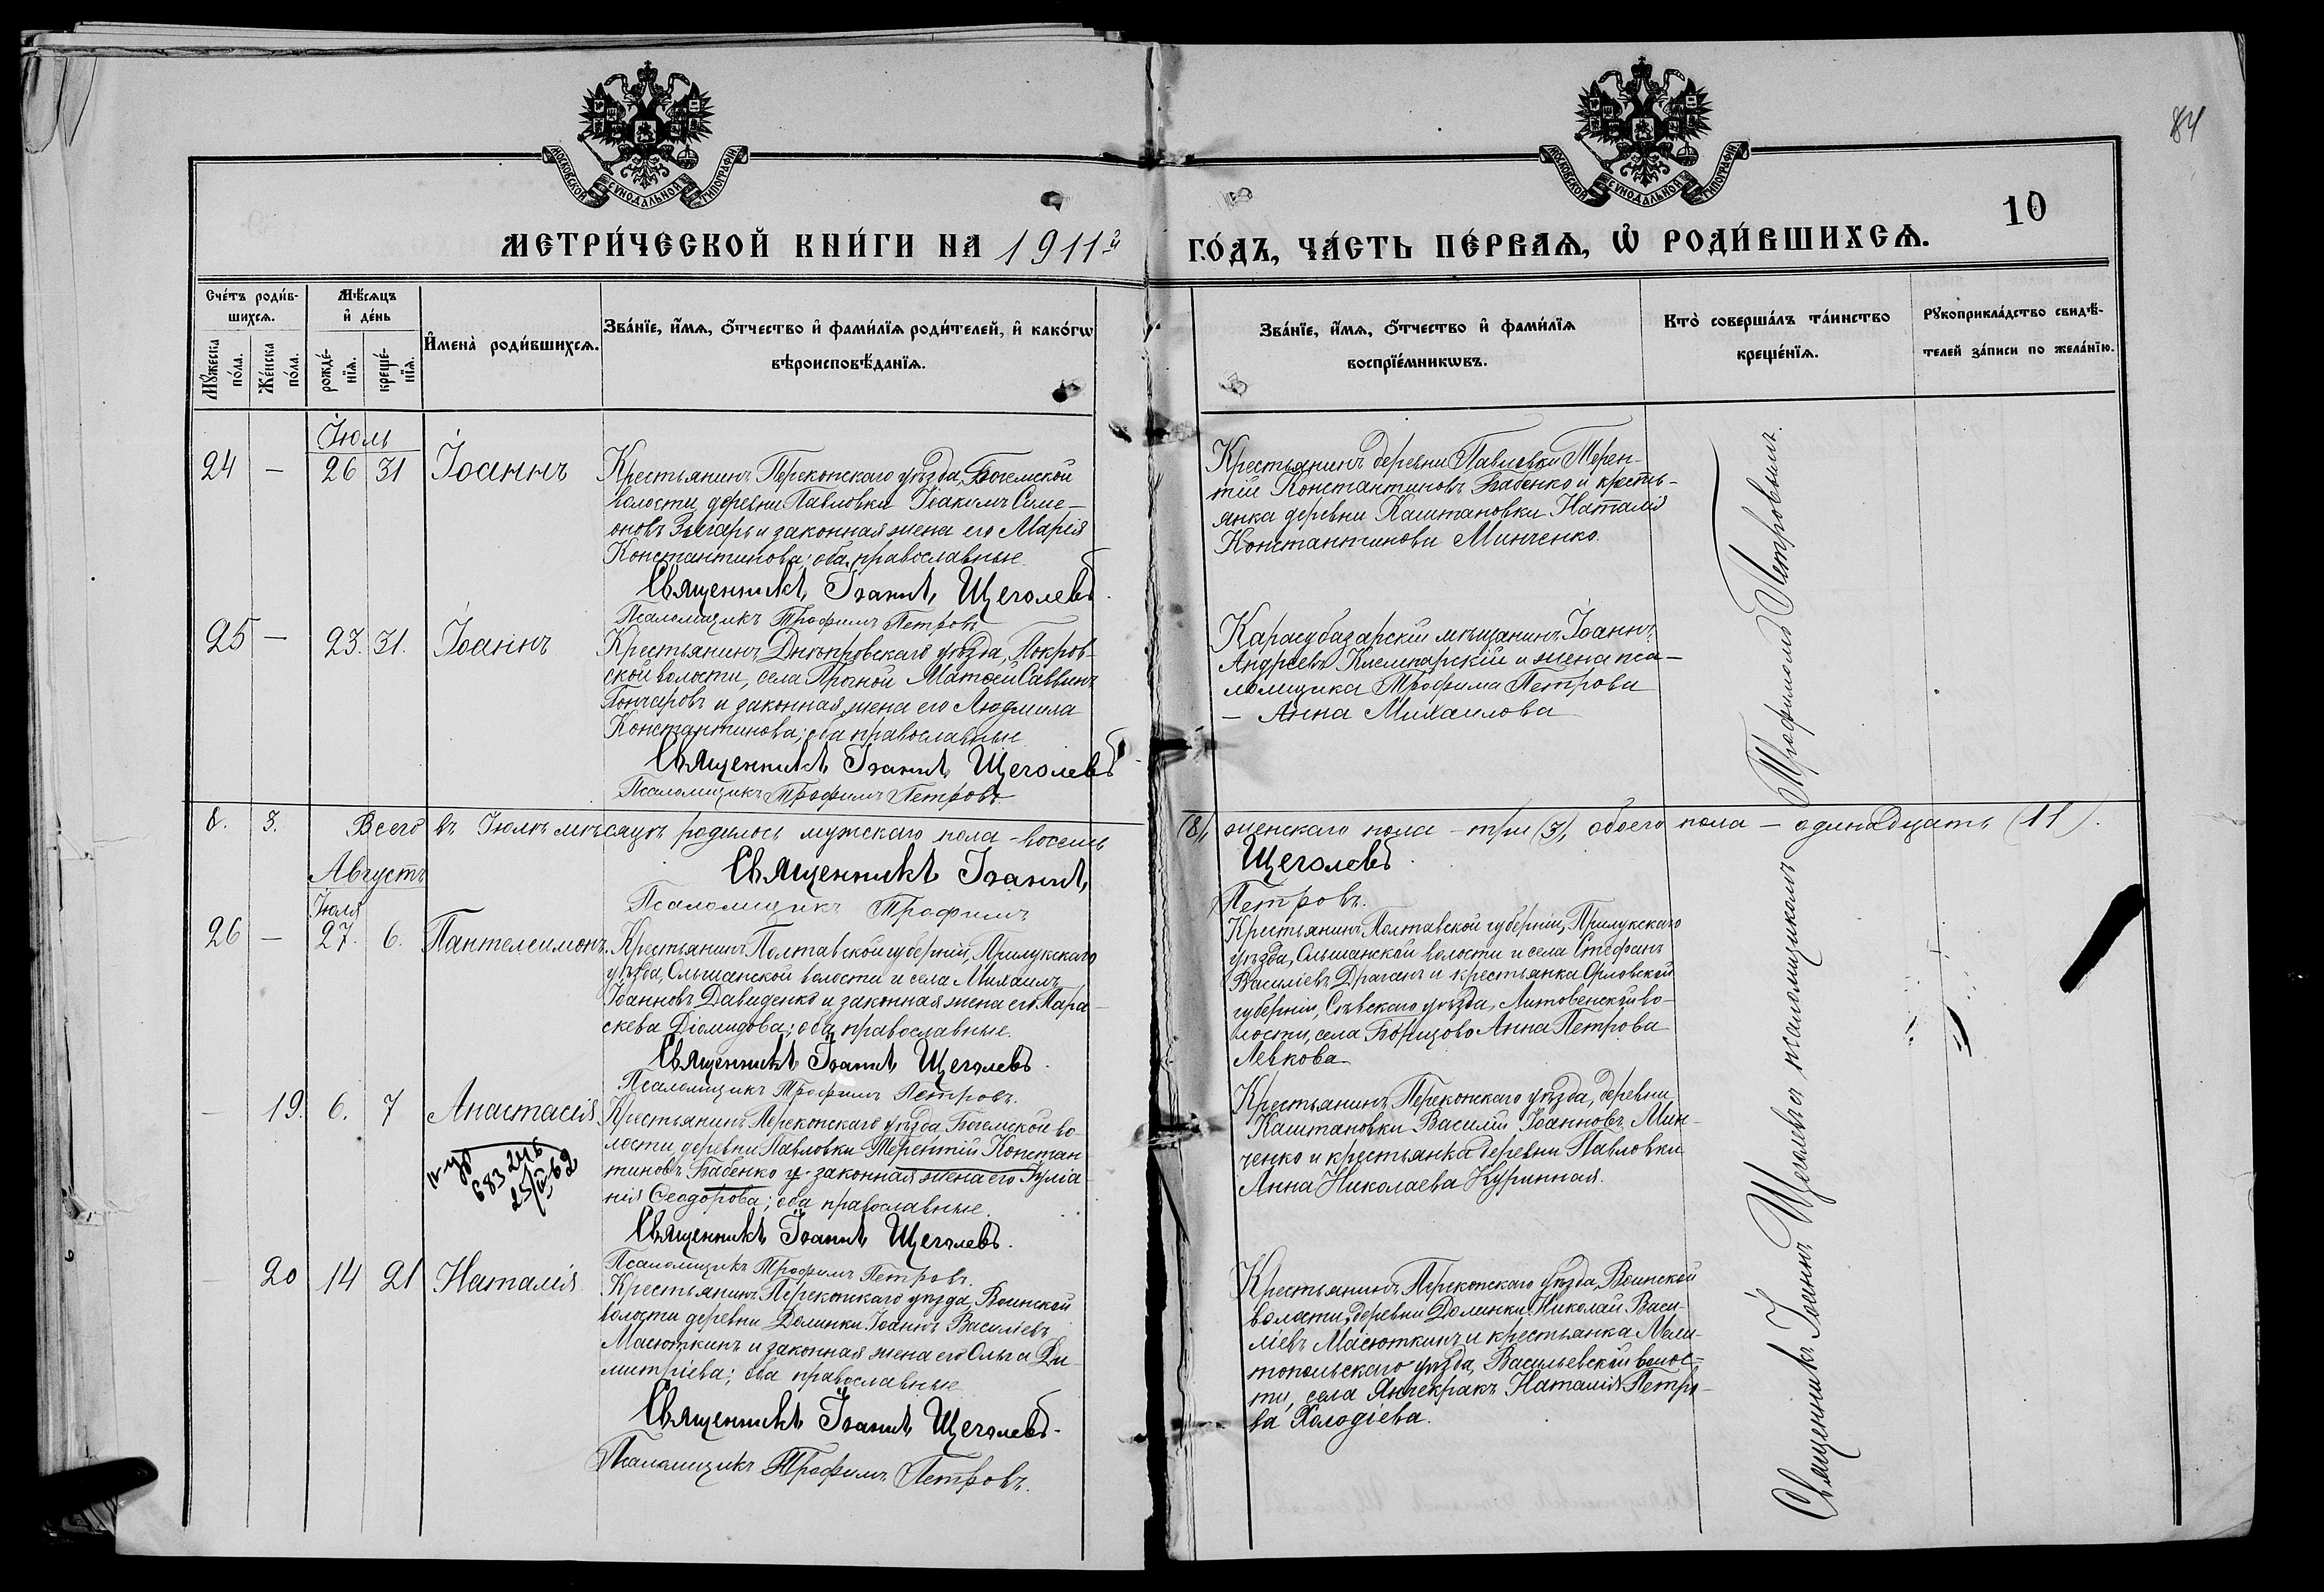 84
10
МОСКОВСКОЙ СѴНОДАЛЬНОЙ ТИПОГРАФІИ
МОСКОВСКОЙ СѴНОДАЛЬНОЙ ТИПОГРАФІИ
МЕТРИ́ЧЕСКОЙ КНИ́ГИ НА 1911й
ГО́ДЪ, ЧА́СТЬ ПЕ́РВАѦ, Ѡ҆ РОДИ́ВШИХСѦ.
Сче́тъ роди́в-
шихсѧ.
Мꙋ́жеска
по́ла.
Же́нска
по́ла.
Мѣ́сѧцъ
и҆ де́нь
рожде́-
нїѧ.
креще́-
нїѧ.
И҆мена̀ роди́вшихсѧ.
Зва́нїе, и҆́мѧ, ѻ҆́тчество и҆ фами́лїѧ роди́телей, и҆ како́гѡ
вѣроисповѣ́данїѧ.
Зва́нїе, и҆́мѧ, ѻ҆́тчество и҆ фами́лїѧ
воспрїе́мникѡвъ.
Кто̀ соверша́лъ та́инство
креще́нїѧ.
Рꙋкоприкла́дство свидѣ́-
телей за́писи по жела́нїю.
Іюль
24 — 26 31 Іоаннъ
Крестьянинъ Перекопскаго уѣзда, Богемской
волости деревни Павловки Іоакимъ Симе-
оновъ Зыгарь и законная жена его Марія
Константинова; оба православные.
Священникъ Іоаннъ Щеголевъ.
Псаломщикъ Трофимъ Петровъ
Крестьянинъ деревни Павловки Терен-
тій Константиновъ Бабенко и кресть-
янка деревни Каштановки Наталія
Константинови Минченко.
25 — 23. 31. Іоаннъ
Крестьянинъ Днѣпровскаго уѣзда, Покров-
ской волости, села Прогной Матѳей Саввинъ
Гончаровъ и законная жена его Людмила
Константинова; оба православные
Священникъ Іоаннъ Щеголевъ
Псаломщикъ Трофимъ Петровъ.
Карасубазарскій мѣщанинъ Іоаннъ
Андреевъ Клемпарскій и жена пса-
ломщика Трофима Петрова
— Анна Михаилова
8. 3. Всего въ Іюлѣ мѣсяцѣ родилось мужскаго пола - восемь (8), женскаго пола - три (3), обоего пола - одинадцать (11).
Священникъ Іоаннъ Щеголевъ.
Псаломщикъ Трофимъ Петровъ.
Августъ
Іюля
26 — 27. 6. Пантелеимонъ.
Крестьянинъ Полтавской губерніи, Прилукскаго
уѣзда, Ольшанской волости и села Михаилъ
Іоанновъ Давиденко и законная жена его Пара-
скева Діомидова; оба православные.
Священникъ Іоаннъ Щеголевъ.
Псаломщикъ Трофимъ Петровъ.
Крестьянинъ Полтавской губерніи, Прилукскаго
уѣзда, Ольшанской волости и села Стефанъ
Василіевъ Драганъ и крестьянка Орловской
губерніи, Сѣвскаго уѣзда, Литовенской во-
лости, села Борщово Анна Петрова
Левкова
— 19. 6. 7 Анастасія
683
25/ 62
Крестьянинъ Перекопскаго уѣзда Богемской во-
лости деревни Павловки Терентій Констан
тиновъ Бабенко и законная жена его Іуліа
нія Ѳеодорова; оба православные.
Священникъ Іоаннъ Щеголевъ.
Псаломщикъ Трофимъ Петровъ.
Крестьянинъ Перекопскаго уѣзда, деревни
Каштановки Василій Іоанновъ Мин-
ченко и крестьянка деревни Павловки
Анна Николаева Куринная.
— 20 14 21 Наталія
Крестьянинъ Перекопскаго уѣзда, Воинской
волости деревни Долинки Іоаннъ Василіевъ
Масюткинъ и законная жена его Ольга Ди-
митріева; оба православные
Священникъ Іоаннъ Щеголевъ.
Псаломщикъ Трофимъ Петровъ.
Крестьянинъ Перекопскаго уѣзда, Воинской
волости, деревни Долинки Николай Васи-
ліевъ Масюткинъ и крестьянка Мели-
топольскаго уѣзда, Васильевской волос-
ти, села Янчекракъ Наталія Петро-
ва Холодіева.
Священникъ Іоаннъ Щеголевъ съ псаломщикомъ Трофимомъ Петровымъ.